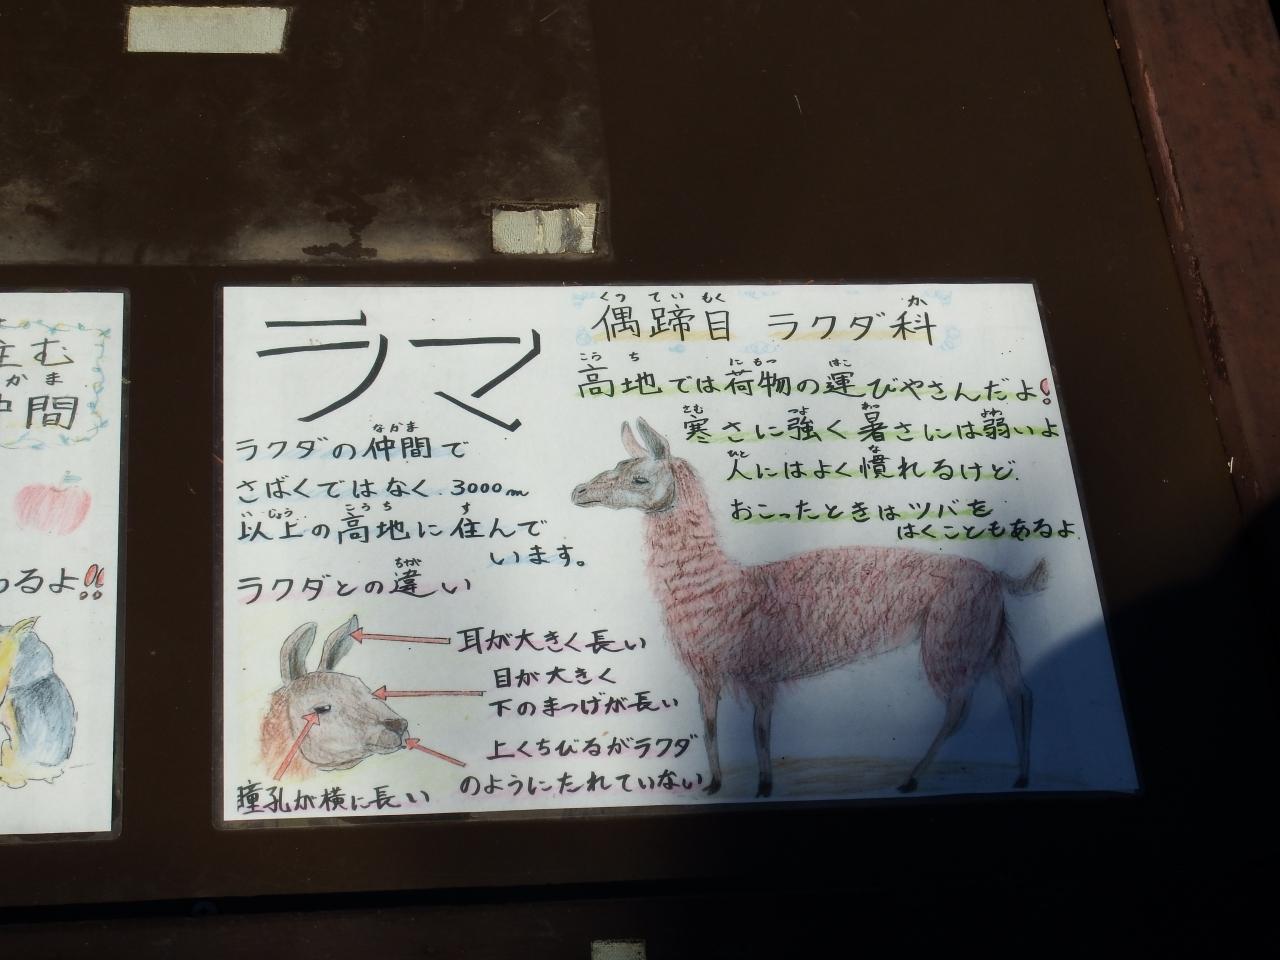 住む
かま
仲間
わるよ!!
ラマ
ぐうていもく か
偶蹄目 ラクダ科
こうち にもつ はこ
高地では荷物の運びやさんだよ!
さむ つよ あつ よわ
寒さに強く暑さには弱いよ
ひと な
人にはよく慣れるけど、
おこったときはツバを
はくこともあるよ
なかま
ラクダの仲間で
さばくではなく、3000m
いじょう こうち す
以上の高地に住んで
います。
ちが
ラクダとの違い
耳が大きく長い
目が大きく
下のまつげが長い
上くちびるがラクダ
のようにたれていない
瞳孔が横に長い